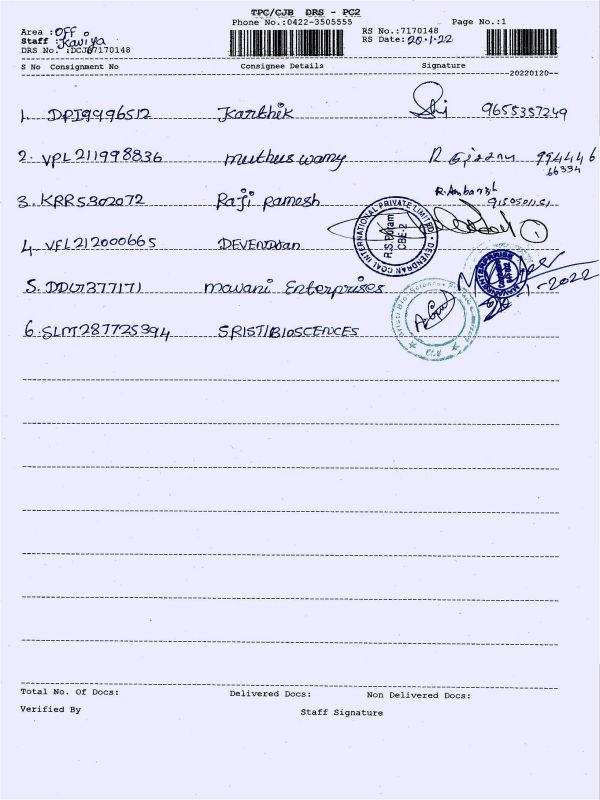 TPC/CJB DRS - PC2
Phone No.:0422-3505555 Page No.:1
Area : OFF RS No.:7170148
Staff : Kaviya RS Date: 20-1-22
DRS No. :DCJB7170148
S No Consignment No Consignee Details Signature
20220120
1. DPI9996512 Karthik 9655357249
2. VPL211998836 muthuswamy 994446
66334
3. KRR5302072 Raji Ramesh R.Anbarsh
4. VFL212000665 DEVENDRan
DEVENDRAN COAL INTERNATIONAL PRIVATE LIMITED
R.S.Puram
CBE-2
1
5. DDU1377171 mavani Enterprises
MAVANI ENTERPRISE
-1-2022
6. SLMT287725394 SRISTIBIOSCENCES
Total No. Of Docs: Delivered Docs: Non Delivered Docs:
Verified By Staff Signature